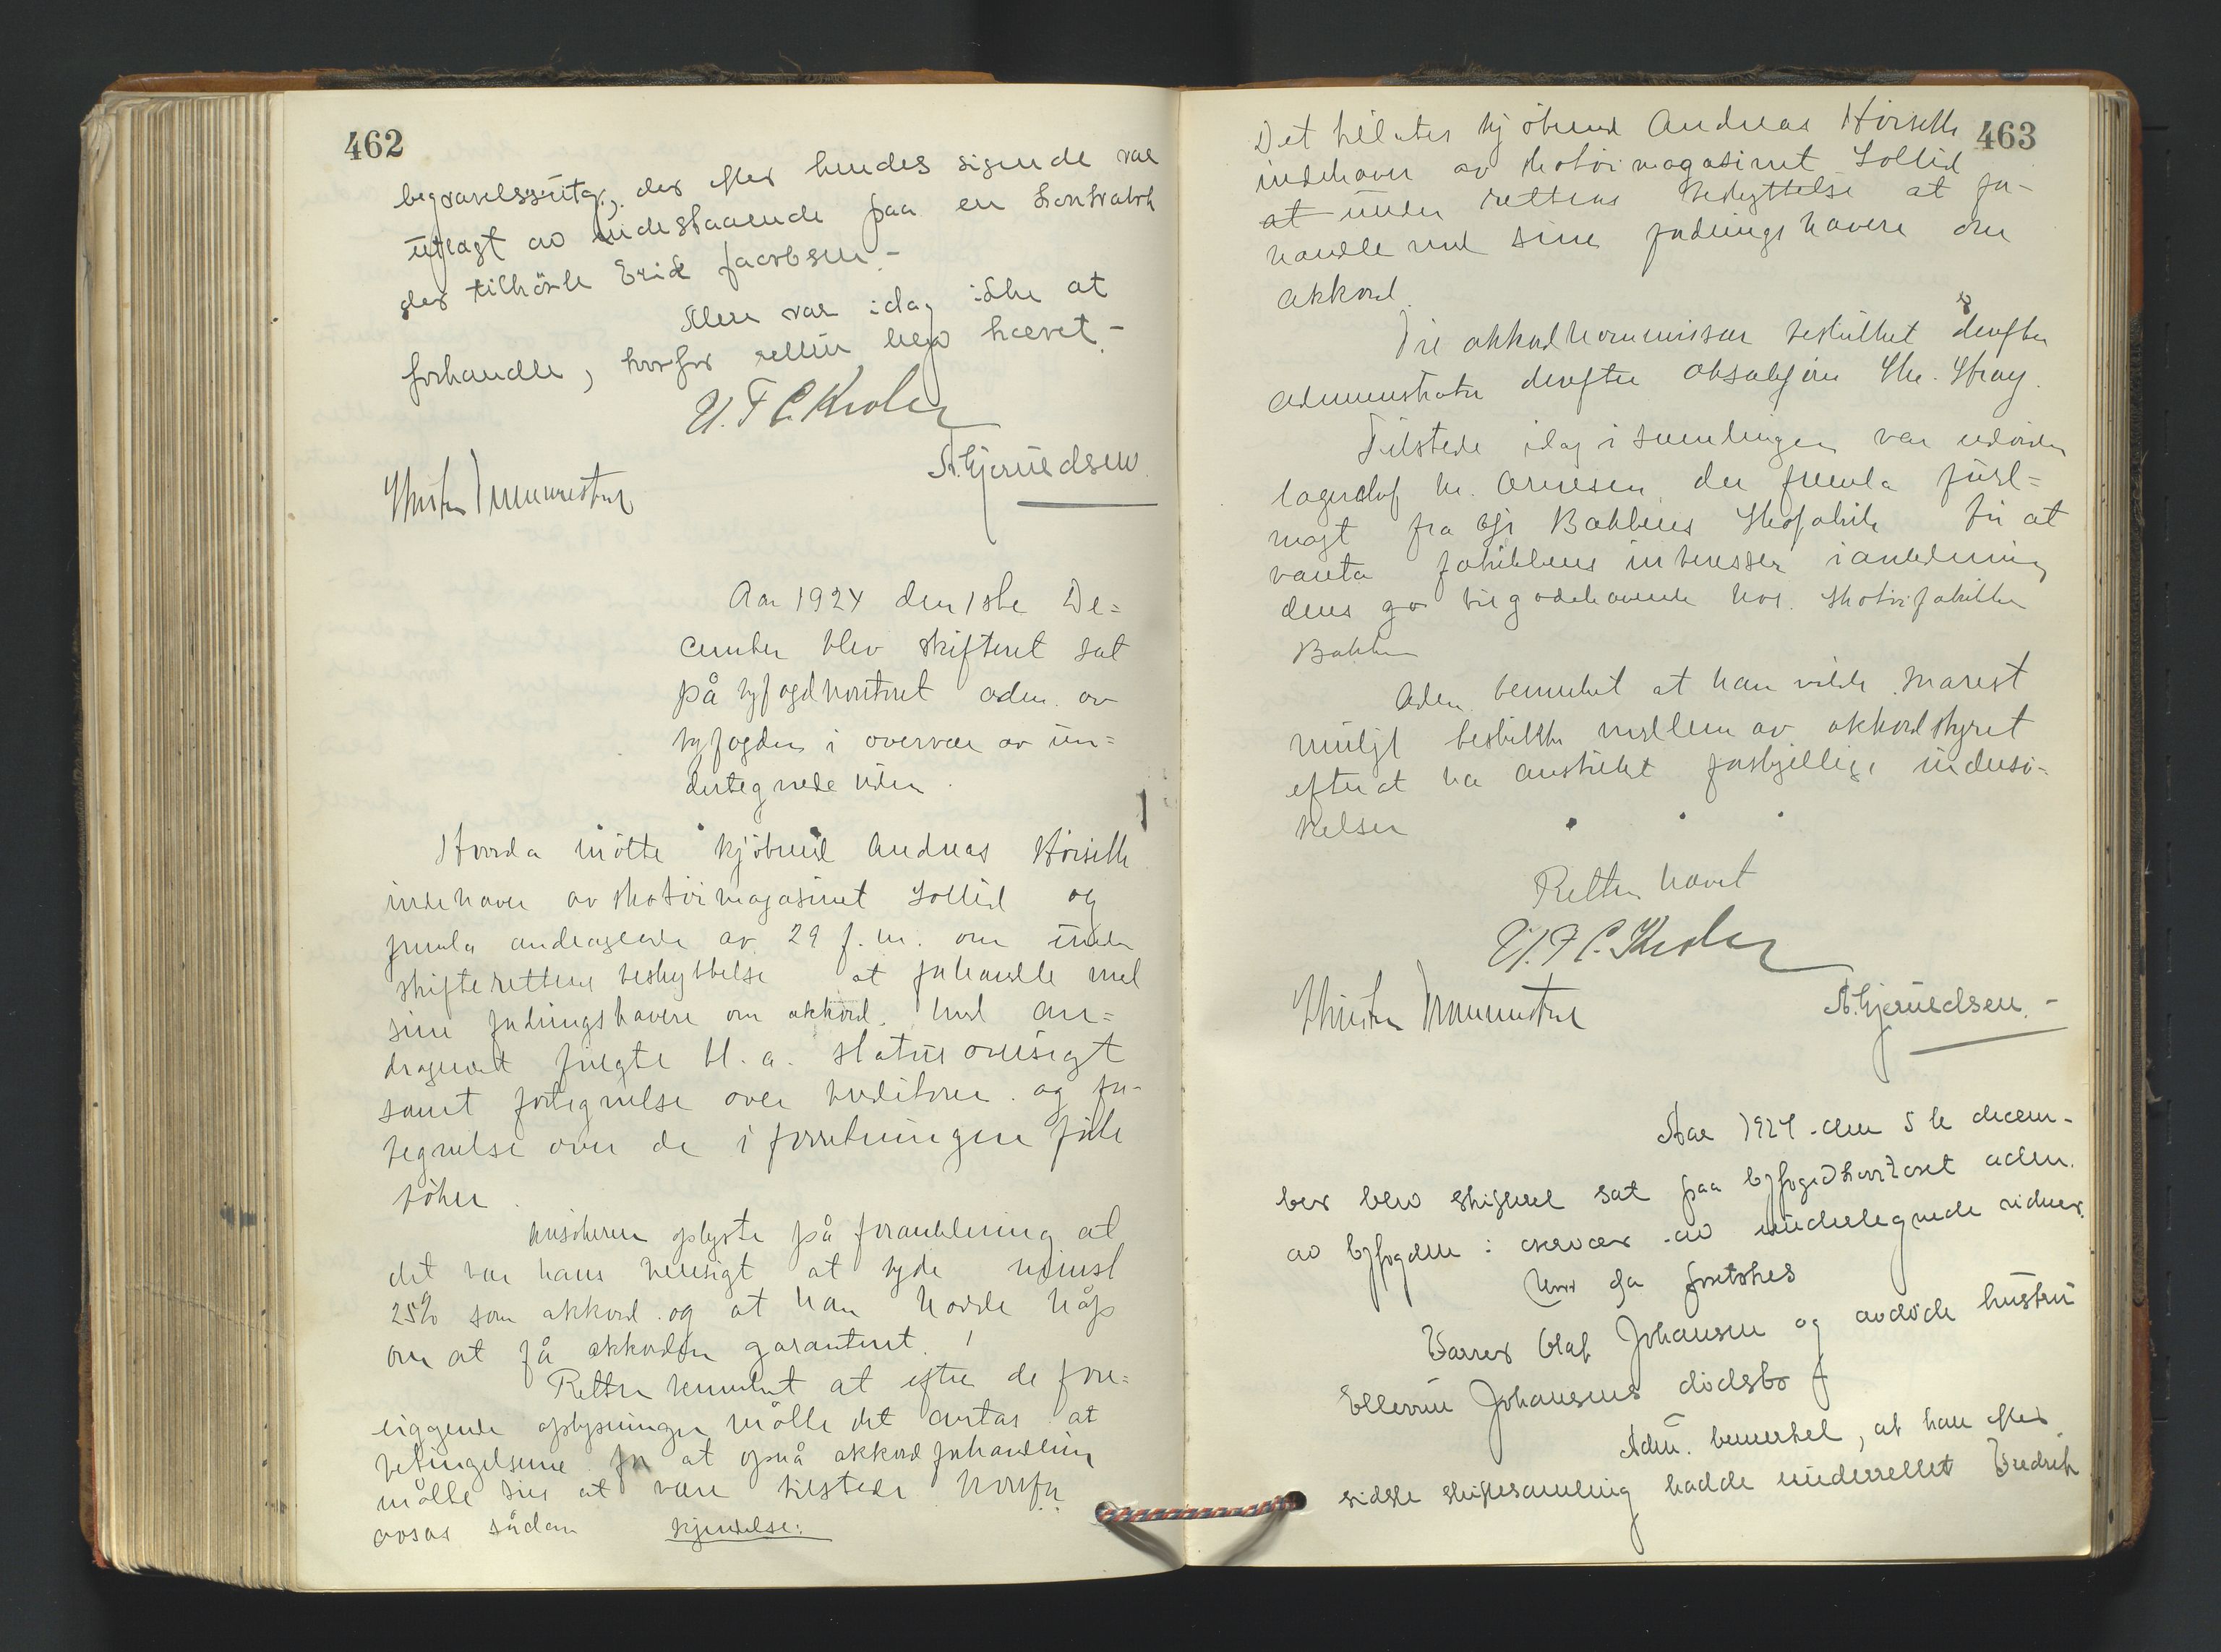 462
begravelsesutg., der efter hendes sigende var
utlagt av indestaaende paa en kontrabok
der tilhörte Erik Jacobsen.-
Mere var idag ikke at
forhandle, hvorfor retten blev hævet.-
U. F. C. Krohn
A. Gjerüldsen
Aar 1924 den 1ste De=
cember blev skifteret sat
på byfogdkontoret adm. av
byfogden i overvær av ün=
dertegnede vidn
Hvorda mötte kjöbmd Andreas Höiseth
indehaver av skotöimagasinet Sollid og
fremla andragende av 29 f. m. om ünder
skifterettens beskyttelse at forhandle med
sine fordringshavere om akkord. Med an=
dragendet fulgte bl. a. status oversigt
samt fortegnelse over kreditorer og for-
tegnelse over de i forretningen förte
böker.
Ansökeren oplyste på foranledning at
det var hans hensigt at byde mindst
25% som akkord og at han havde håp
om at få akkorden garanteret.
Retten bemerket at efter de fore=
liggende oplysninger måtte det antas at
betingelserne for at opnå akkordforhandling
måtte sies at være tilstede hvorfor
avsas sådan kjendelse:
463
Det tillates kjöbmd Andreas Höiseth
indehaver av skotöimagasinet Sollid
at ünder rettens beskyttelse at for-
handle med sine fordringshavere om
akkord.
Til akkordkommissær beskikket derefter
administrator derefter overretssakförer Chr. Stray.
Tilstede idag i samlingen var
lagerchef hr. Arnesen, der fremla fuld=
magt fra Bakkens Skofabrik for at
vareta fabrikkens interesser i anledning
dens tilgodehavende hos Skotöifabrikken
Bakken
Adm. bemerket at han vilde snarest
muligt beskikke medlem av akkordstyret
efter at ha anstillet forskjellige ündersö-
kelser
Retten hævet
U. F. C. Krohn
A. Gjerüldsen.-
Aar 1924 den 5te decem-
ber blev skifteret sat paa byfogdkontoret adm.
av byfogden i overvær av undertegnede vidner.
Hvor da foretokes
Garver Olaf Johansen og avdöde hustru
Ellevine Johansens dödsbo
Adm. bemerket, at han efter
sidste skiftesamling hadde underrettet Fredrik